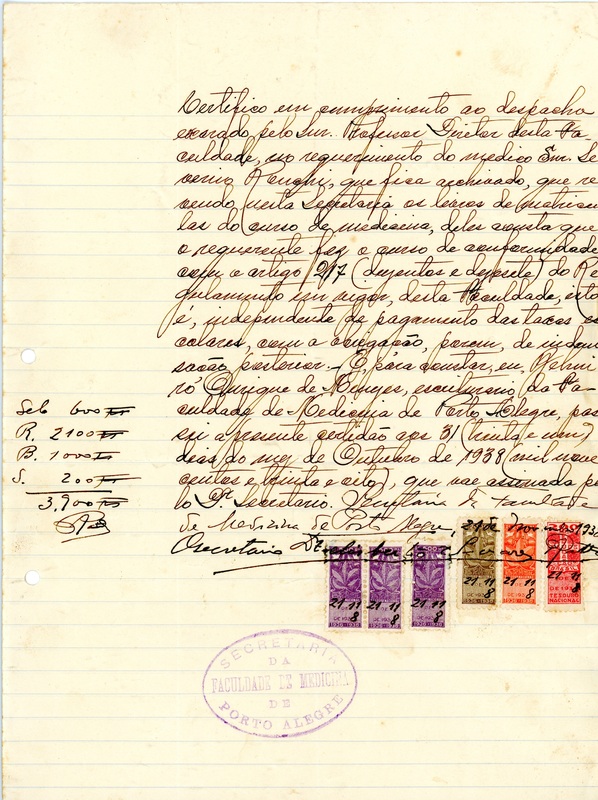 Certifico em cumprimento ao despacho
exarado pelo Snr. Professor Diretor desta Fa-
culdade, no requerimento do medico Snr. Se
verino, que fica archivado, que re
vendo nesta Secretaria os livros de matricu
las do curso de medicina, deles consta que
o requerente fez o curso de conformidade
com o artigo 217 (duzentos e desesete) do Re
gulamento em vigor, desta Faculdade, isto
é, independente de pagamento das taxas es
colares, com a obrigação, porem, de indeni
sação posterior. - E, para constar, eu,
Henrique de Menezes, escriturario da Fa-
culdade de Medicina de Porto Alegre, pas
sei a presente certidão aos 31 (trinta e um)
dias do mez de Outubro de 1938 (mil nove
centos e trinta e oito), que vae assinada pe
lo Dr. Secretario. Secretaria da Faculdade
de Medicina de Porto Alegre, 21 de Novembro 1938
O secretario Dr.
Selo 600
R. 2100
B. 1000
S. 200
3,900
21 11 8
DE 193
1936-1938
21 11 8
DE 193
1936-1938
21 11 8
DE 193
1936-1938
21 11 8
DE 193
1936-1938
21 11 8
DE 193
1936-1938
21 11 8
DE 193
TESOURO
NACIONAL
SECRETARIA
DA
FACULDADE DE MEDICINA
DE
PORTO ALEGRE